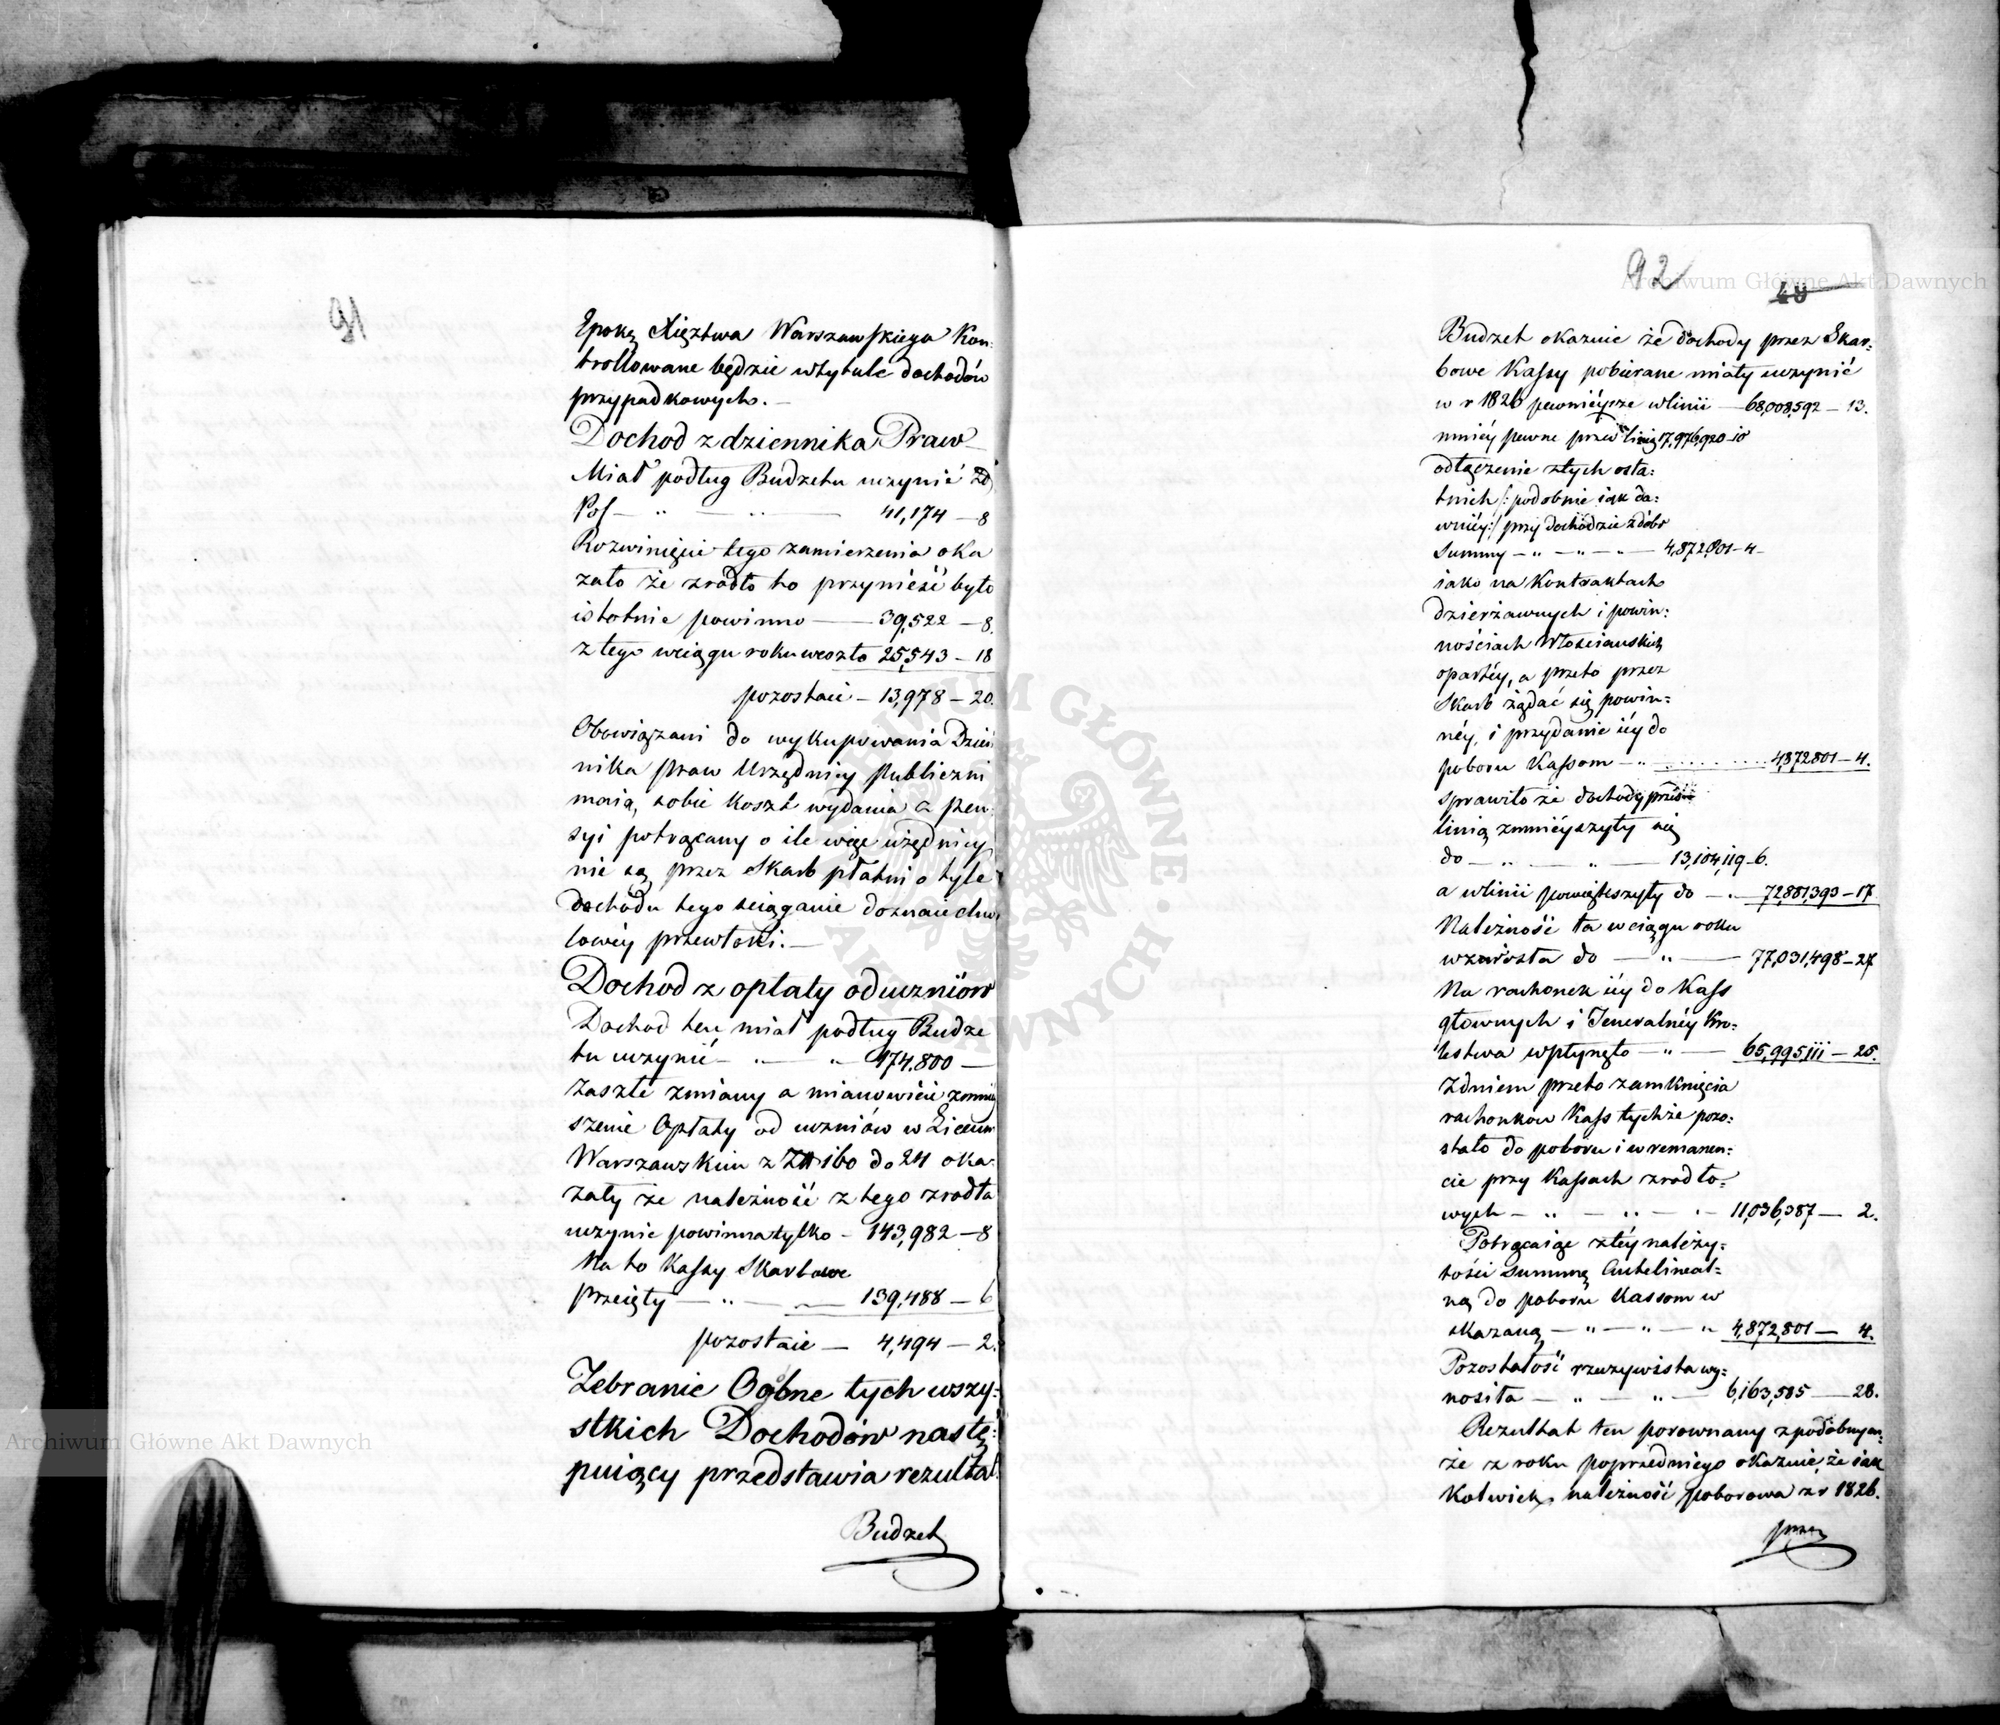 91
Epokę Xięztwa Warszawskiego Kon:
trollowane będzie wtytule dochodów
przypadkowych. —
Dochod z dziennika Praw
Miał podług Budżetu uczynić Zł
Pol — " — " — 41,174 — 8
Rozwinięcie tego zamierzenia oka
zało że zrodło to przynieść było
istotnie powinno — 39,522 — 8.
z tego wciągu roku weszło 25,543 — 18
pozostaie — 13,978 — 20.
Obowiązani do wykupowania Dzien
nika praw Urzędnicy Publiczni
maią sobie koszt wydania z pen:
syi potrącany o ile więc urzędnicy
nie są przez Skarb płatni o tyle
dochodu tego sciąganie doznaie chwi
lowéy przewłoki. —
Dochod z opłaty od uczniów
Dochod ten miał podług Budże
tu uczynić — " — " 174,800 —
zaszłe zmiany a mianowicie zmniéy
szenie Opłaty od uczniów w Liceum
Warszawskim z Zł 160 do 24 oka:
zały że należność z tego zrodła
uczynic powinna tylko — 143,982 — 8
Na to Kassy Skarbowe
przeięły — " — 139,488 — 6
pozostaie — 4,494 — 2.
Zebranie Ogólne tych wszy:
stkich Dochodów nastę:
puiący przedstawia rezultat.
Budżet
92
49
Budżet okazuie że dochody przez Skar:
bowe Kassy pobierane miały uczynić
w r 1826 pewniéysze wlinii — 68,008,592 — 13.
mniéy pewne przed linią 17,976,920 — 10
odłączenie ztych osta:
tnich /: podobnie iak da:
wniéy :/ przy dochodzie zdóbr
Summy — " — " — " — 4,872,801 — 4 —
iako na Kontraktach
dzierżawnych i powin:
nościach Włościańskich
opartéy, a przeto przez
Skarb żądać się powin:
néy, i przydanie iéy do
poboru Kassom — " . . . . . . . . 4,872,801 — 4.
sprawiło że dochody przed
linią zmniéyszyły się
do — " — " — 13,104,119 — 6.
a wlinii powiększyły do — " — 72,881,393 — 17.
Należność ta wciągu roku
wzrosła do — " — 77,031,498 — 27
Na rachonek iéy do Kass
głownych i Jeneralnéy Kro:
lestwa wpłynęło — " — 65,995,111 — 25.
Zdniem przeto zamknięcia
rachonkow Kass tychże pozo:
stało do poboru i w remanen:
cie przy Kassach zrodło:
wych — " — " — " — 11,036,387 — 2.
Potrącaiąc ztéy należy:
tości summę Antelineal:
ną do poboru Kassom w
skazaną — " — " — " 4,872,801 — 4.
Pozostałość rzeczywista wy:
nosiła — " — " — 6,163,585 — 28.
Rezultat ten porownany zpodobnym:
że z roku poprzedniego okazuie, że iak
kolwiek należność poborowa z r 1826.
przez
Archiwum Główne Akt Dawnych
Archiwum Główne Akt Dawnych
ARCHIWUM GŁÓWNE AKT DAWNYCH